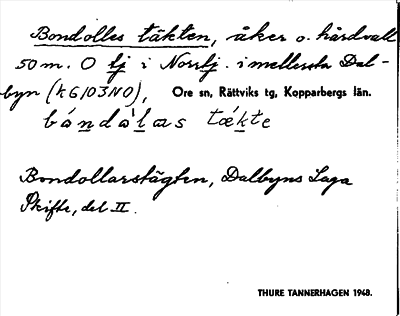 Bondolles täkten, åker o. hårdvall
50 m. O tj i Norrtj. i mellersta Dal-
byn (k6103NO), Ore sn, Rättviks tg, Kopparbergs län.
bándàlas tækte
Bondollarstägten, Dalbyns Laga
Skifte, del II.
THURE TANNERHAGEN 1948.